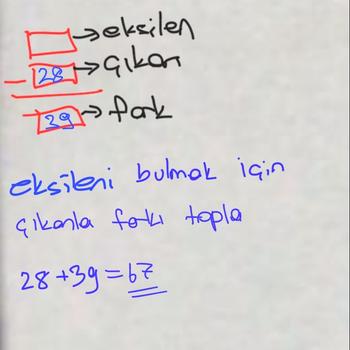 → eksilen
- 28 → Çıkan
39 → fark
eksileni bulmak için
çıkanla farkı topla
28+39=67